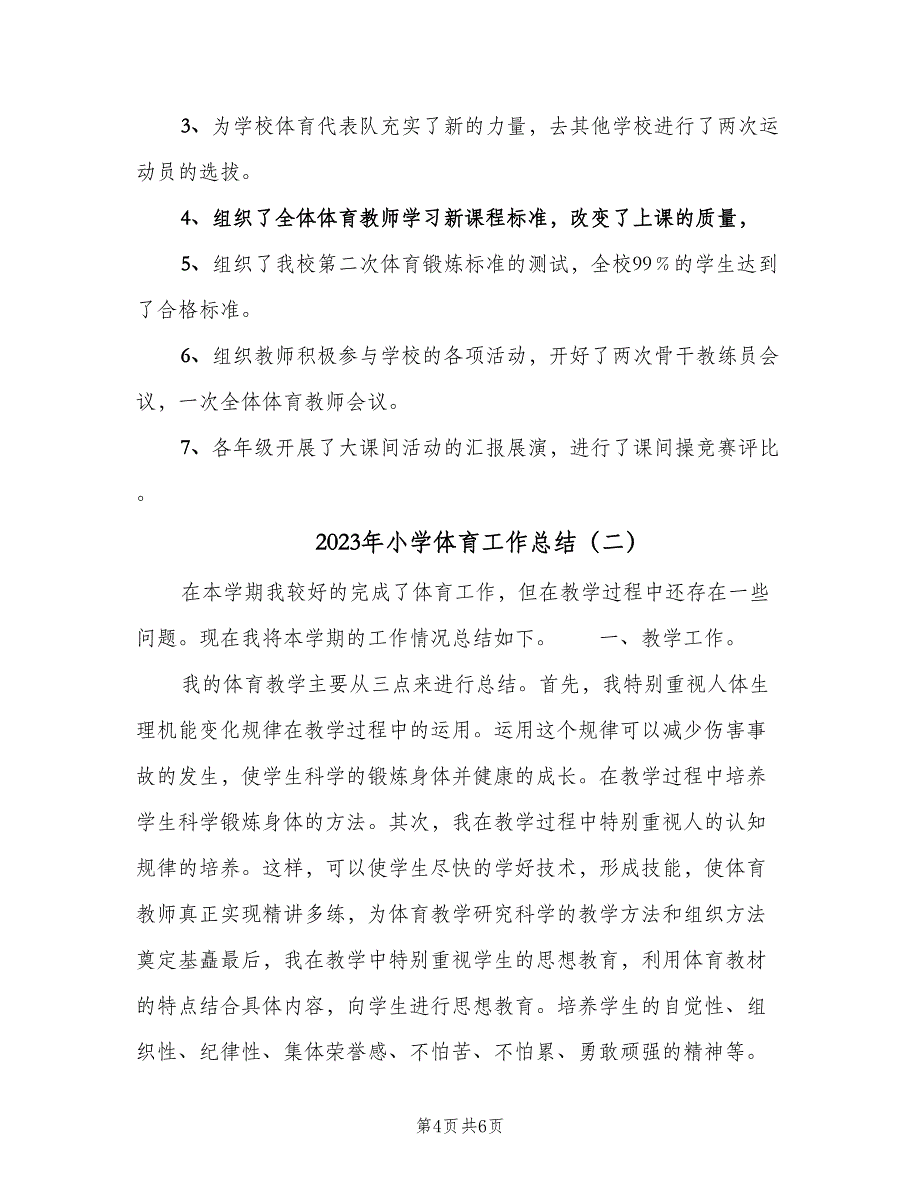 3、为学校体育代表队充实了新的力量，去其他学校进行了两次运
动员的选拔。
4、组织了全体体育教师学习新课程标准，改变了上课的质量，
5、组织了我校第二次体育锻炼标准的测试，全校99％的学生达到
了合格标准。
6、组织教师积极参与学校的各项活动，开好了两次骨干教练员会
议，一次全体体育教师会议。
7、各年级开展了大课间活动的汇报展演，进行了课间操竞赛评比
。
2023年小学体育工作总结（二）
在本学期我较好的完成了体育工作，但在教学过程中还存在一些
问题。现在我将本学期的工作情况总结如下。 一、教学工作。
我的体育教学主要从三点来进行总结。首先，我特别重视人体生
理机能变化规律在教学过程中的运用。运用这个规律可以减少伤害事
故的发生，使学生科学的锻炼身体并健康的成长。在教学过程中培养
学生科学锻炼身体的方法。其次，我在教学过程中特别重视人的认知
规律的培养。这样，可以使学生尽快的学好技术，形成技能，使体育
教师真正实现精讲多练，为体育教学研究科学的教学方法和组织方法
奠定基矗最后，我在教学中特别重视学生的思想教育，利用体育教材
的特点结合具体内容，向学生进行思想教育。培养学生的自觉性、组
织性、纪律性、集体荣誉感、不怕苦、不怕累、勇敢顽强的精神等。
第4页共6页